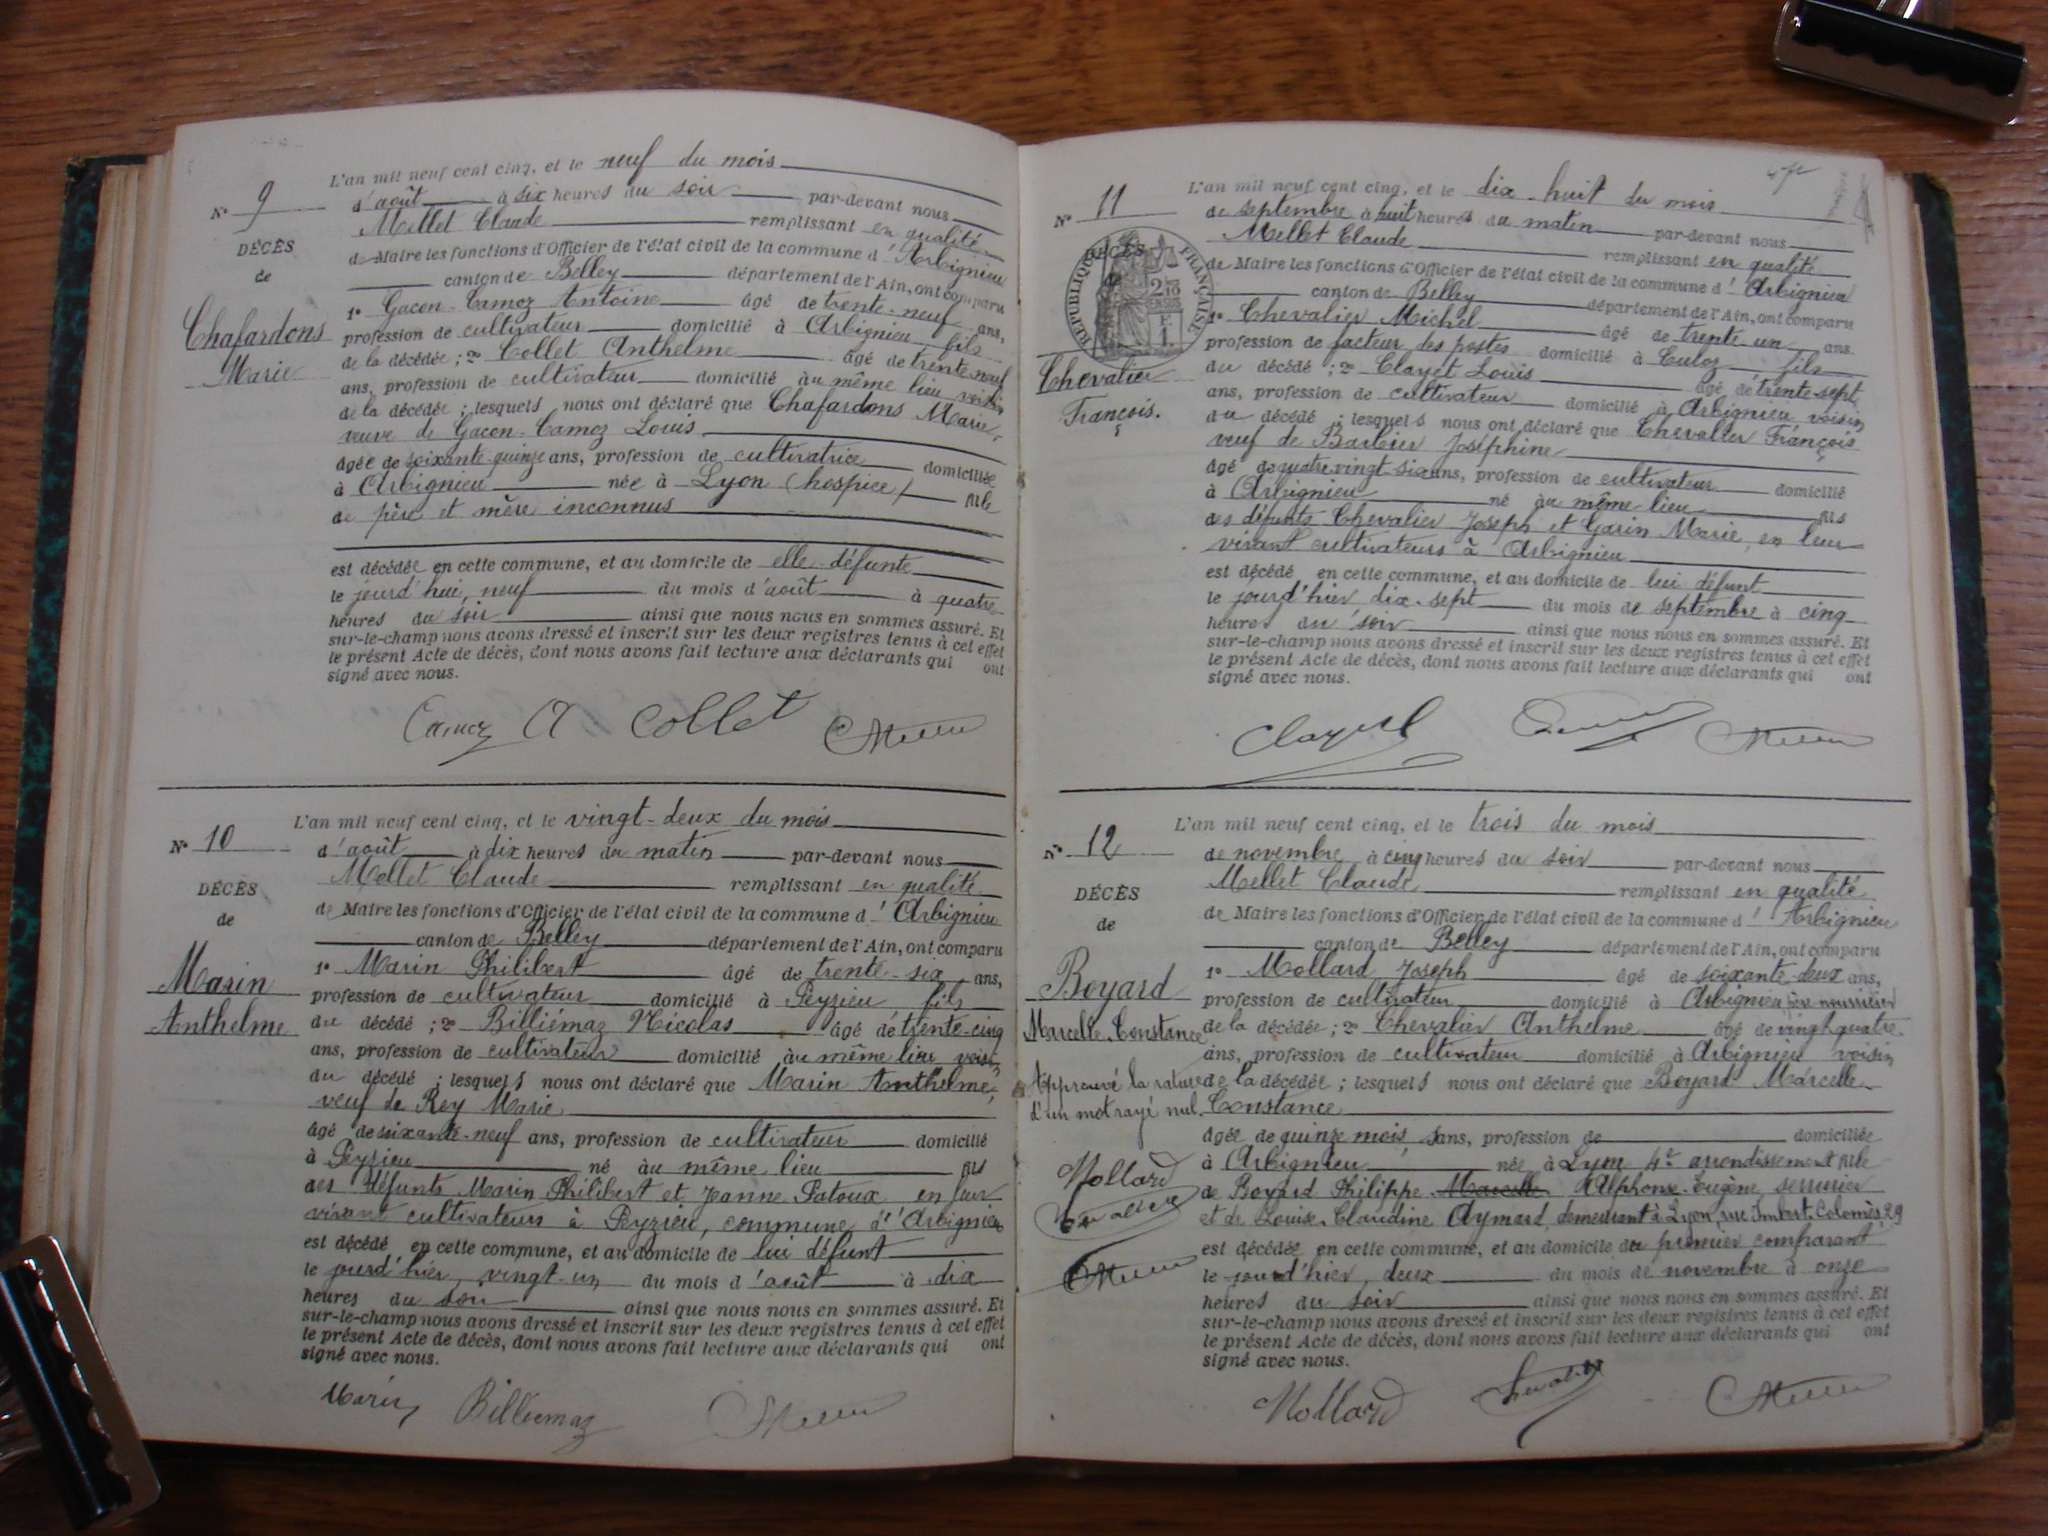 L'an mil neuf cent cinq, et le neuf du mois
N° 9
d'août à six heures du soir par-devant nous
Mellet Claude remplissant en qualité
DÉCÈS
de Maire les fonctions d'Officier de l'état civil de la commune d'Arbignieu
de
canton de Belley département de l'Ain, ont comparu
1° Gacon-Camoz Antoine âgé de trente-neuf ans,
Chafardons
profession de cultivateur domicilié à Arbignieu fils
Marie
de la décédée ; 2° Collet Anthelme âgé de trente neuf
ans, profession de cultivateur domicilié au même lieu voisin
de la décédée ; lesquels nous ont déclaré que Chafardons Marie,
veuve de Gacon-Camoz Louis
âgée de soixante-quinze ans, profession de cultivatrice domiciliée
à Arbignieu née à Lyon (hospice) fille
de père et mère inconnus
est décédée en cette commune, et au domicile de elle défunte
le jourd'hui, neuf du mois d'août à quatre
heures du soir ainsi que nous nous en sommes assuré. Et
sur-le-champ nous avons dressé et inscrit sur les deux registres tenus à cet effet
le présent Acte de décès, dont nous avons fait lecture aux déclarants qui ont
signé avec nous.
Camoz A Collet CMellet
L'an mil neuf cent cinq, et le vingt-deux du mois
N° 10
d'août à dix heures du matin par-devant nous
Mellet Claude remplissant en qualité
DÉCÈS
de Maire les fonctions d'Officier de l'état civil de la commune d'Arbignieu
de
canton de Belley département de l'Ain, ont comparu
Marin
1° Marin Philibert âgé de trente-six ans,
profession de cultivateur domicilié à Peyzieu fils
Anthelme
du décédé ; 2° Billiémaz Nicolas âgé de trente-cinq
ans, profession de cultivateur domicilié au même lieu voisin
du décédé ; lesquels nous ont déclaré que Marin Anthelme,
veuf de Rey Marie
âgé de soixante-neuf ans, profession de cultivateur domicilié
à Peyzieu né au même lieu fils
des défunts Marin Philibert et Jeanne Patoux en leur
vivant cultivateurs à Peyzieu, commune d'Arbignieu
est décédé en cette commune, et au domicile de lui défunt
le jourd'hier, vingt-un du mois d'août à dix
heures du soir ainsi que nous nous en sommes assuré. Et
sur-le-champ nous avons dressé et inscrit sur les deux registres tenus à cet effet
le présent Acte de décès, dont nous avons fait lecture aux déclarants qui ont
signé avec nous.
Marin Billiemaz CMellet
L'an mil neuf cent cinq, et le dix-huit du mois
N° 11
de septembre à huit heures du matin par-devant nous
Mellet Claude remplissant en qualité
DÉCÈS
RÉPUBLIQUE FRANÇAISE
de Maire les fonctions d'Officier de l'état civil de la commune d'Arbignieu
de
canton de Belley département de l'Ain, ont comparu
1° Chevalier Michel âgé de trente-un ans
profession de facteur des postes domicilié à Culoz fils
Chevalier
du décédé ; 2° Clayet Louis âgé de trente-sept
François.
ans, profession de cultivateur domicilié à Arbignieu voisin
du décédé ; lesquels nous ont déclaré que Chevalier François
veuf de Barbier Joséphine
âgé de quatre vingt-six ans, profession de cultivateur domicilié
à Arbignieu né au même lieu fils
des défunts Chevalier Joseph et Garin Marie, en leur
vivant cultivateurs à Arbignieu
est décédé en cette commune, et au domicile de lui défunt
le jourd'hier dix-sept du mois de septembre à cinq
heures du soir ainsi que nous nous en sommes assuré. Et
sur-le-champ nous avons dressé et inscrit sur les deux registres tenus à cet effet
le présent Acte de décès, dont nous avons fait lecture aux déclarants qui ont
signé avec nous.
Clayet CMellet
L'an mil neuf cent cinq, et le trois du mois
N° 12
de novembre à cinq heures du soir par-devant nous
Mellet Claude remplissant en qualité
DÉCÈS
de Maire les fonctions d'Officier de l'état civil de la commune d'Arbignieu
de
canton de Belley département de l'Ain, ont comparu
Boyard
1° Mollard Joseph âgé de soixante-deux ans,
profession de cultivateur domicilié à Arbignieu père nourricier
Marcelle Constance
de la décédée ; 2° Chevalier Anthelme âgé de vingt quatre
ans, profession de cultivateur domicilié à Arbignieu voisin
Approuvé la rature
de la décédée ; lesquels nous ont déclaré que Boyard Marcelle
d'un mot rayé nul.
Constance
âgée de quinze mois, sans, profession de domiciliée
à Arbignieu née à Lyon 4e arrondissement fille
Mollard
de Boyard Philippe Marcelle Alphonse-Eugène, serrurier
Chevalier
et de Louise-Claudine Aymard, demeurant à Lyon, rue Imbert-Colomès, 29
est décédée en cette commune, et au domicile du premier comparant
CMellet
le jourd'hier, deux du mois de novembre à onze
heures du soir ainsi que nous nous en sommes assuré. Et
sur-le-champ nous avons dressé et inscrit sur les deux registres tenus à cet effet
le présent Acte de décès, dont nous avons fait lecture aux déclarants qui ont
signé avec nous.
Mollard Chevalier CMellet